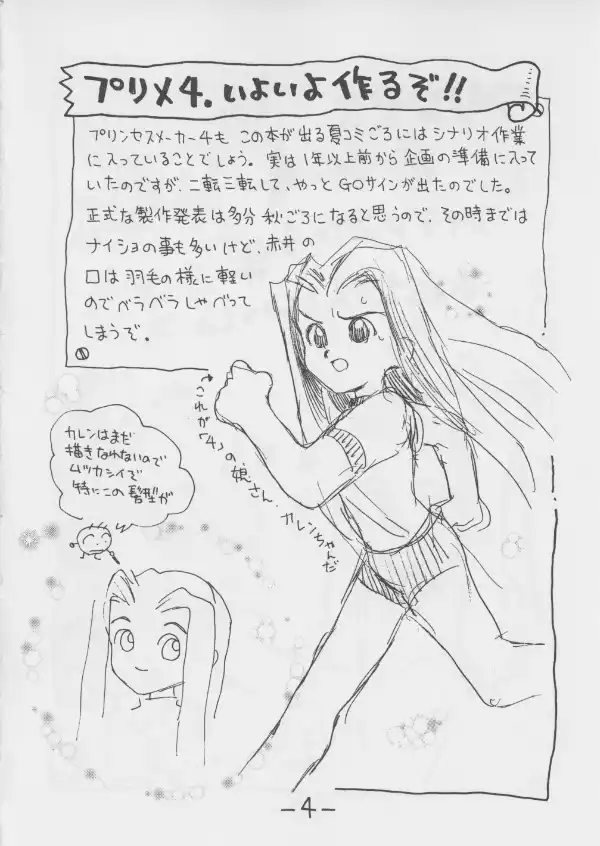 プリメ4.いよいよ作るぞ!!
プリンセスメーカー4も この本が出る夏コミごろにはシナリオ作業
に入っていることでしょう。実は1年以上前から企画の準備に入って
いたのですが、二転三転して、やっとGOサインが出たのでした。
正式な製作発表は多分秋ごろになると思うので、その時までは
ナイショの事も多いけど、赤井の
口は羽毛の様に軽い
のでベラベラしゃべって
しまうぞ。
これが「4」の娘さん、カレンちゃんだ
カレンはまだ
描きなれないので
ムツカシイで
特にこの髪型が
-4-